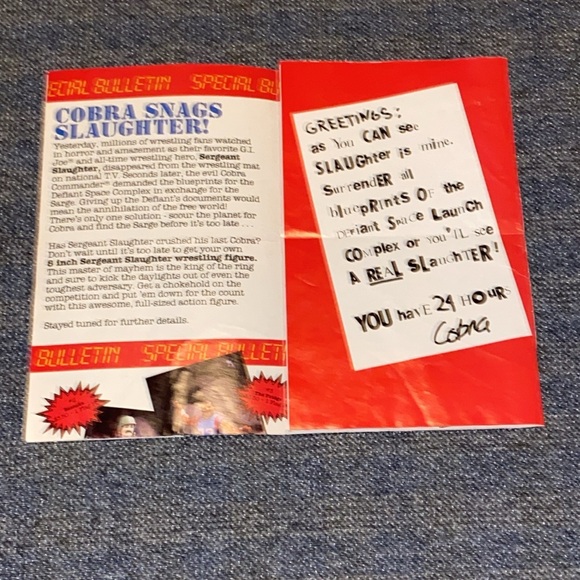 ECIAL BULLETIN SPECIAL BU
COBRA SNAGS
SLAUGHTER!
Yesterday, millions of wrestling fans watched
in horror and amazement as their favorite G.I.
Joe® and all-time wrestling hero, Sergeant
Slaughter, disappeared from the wrestling mat
on national T.V. Seconds later, the evil Cobra
Commander® demanded the blueprints for the
Defiant Space Complex in exchange for the
Sarge. Giving up the Defiant's documents would
mean the annihilation of the free world!
There's only one solution - scour the planet for
Cobra and find the Sarge before it's too late . . .
Has Sergeant Slaughter crushed his last Cobra?
Don't wait until it's too late to get your own
8 inch Sergeant Slaughter wrestling figure.
This master of mayhem is the king of the ring
and sure to kick the daylights out of even the
toughest adversary. Get a chokehold on the
competition and put 'em down for the count
with this awesome, full-sized action figure.
Stayed tuned for further details.
BULLETIN SPECIAL BULLETI
GREETINGS:
as You CAN see
SLAUGhter is mine.
SurrendER all
bluepRINts OF the
Defiant Space LaunCh
COmplex or You'LL see
A REAL SLaUGHTER!
YOU haVE 24 HOURS
Cobra